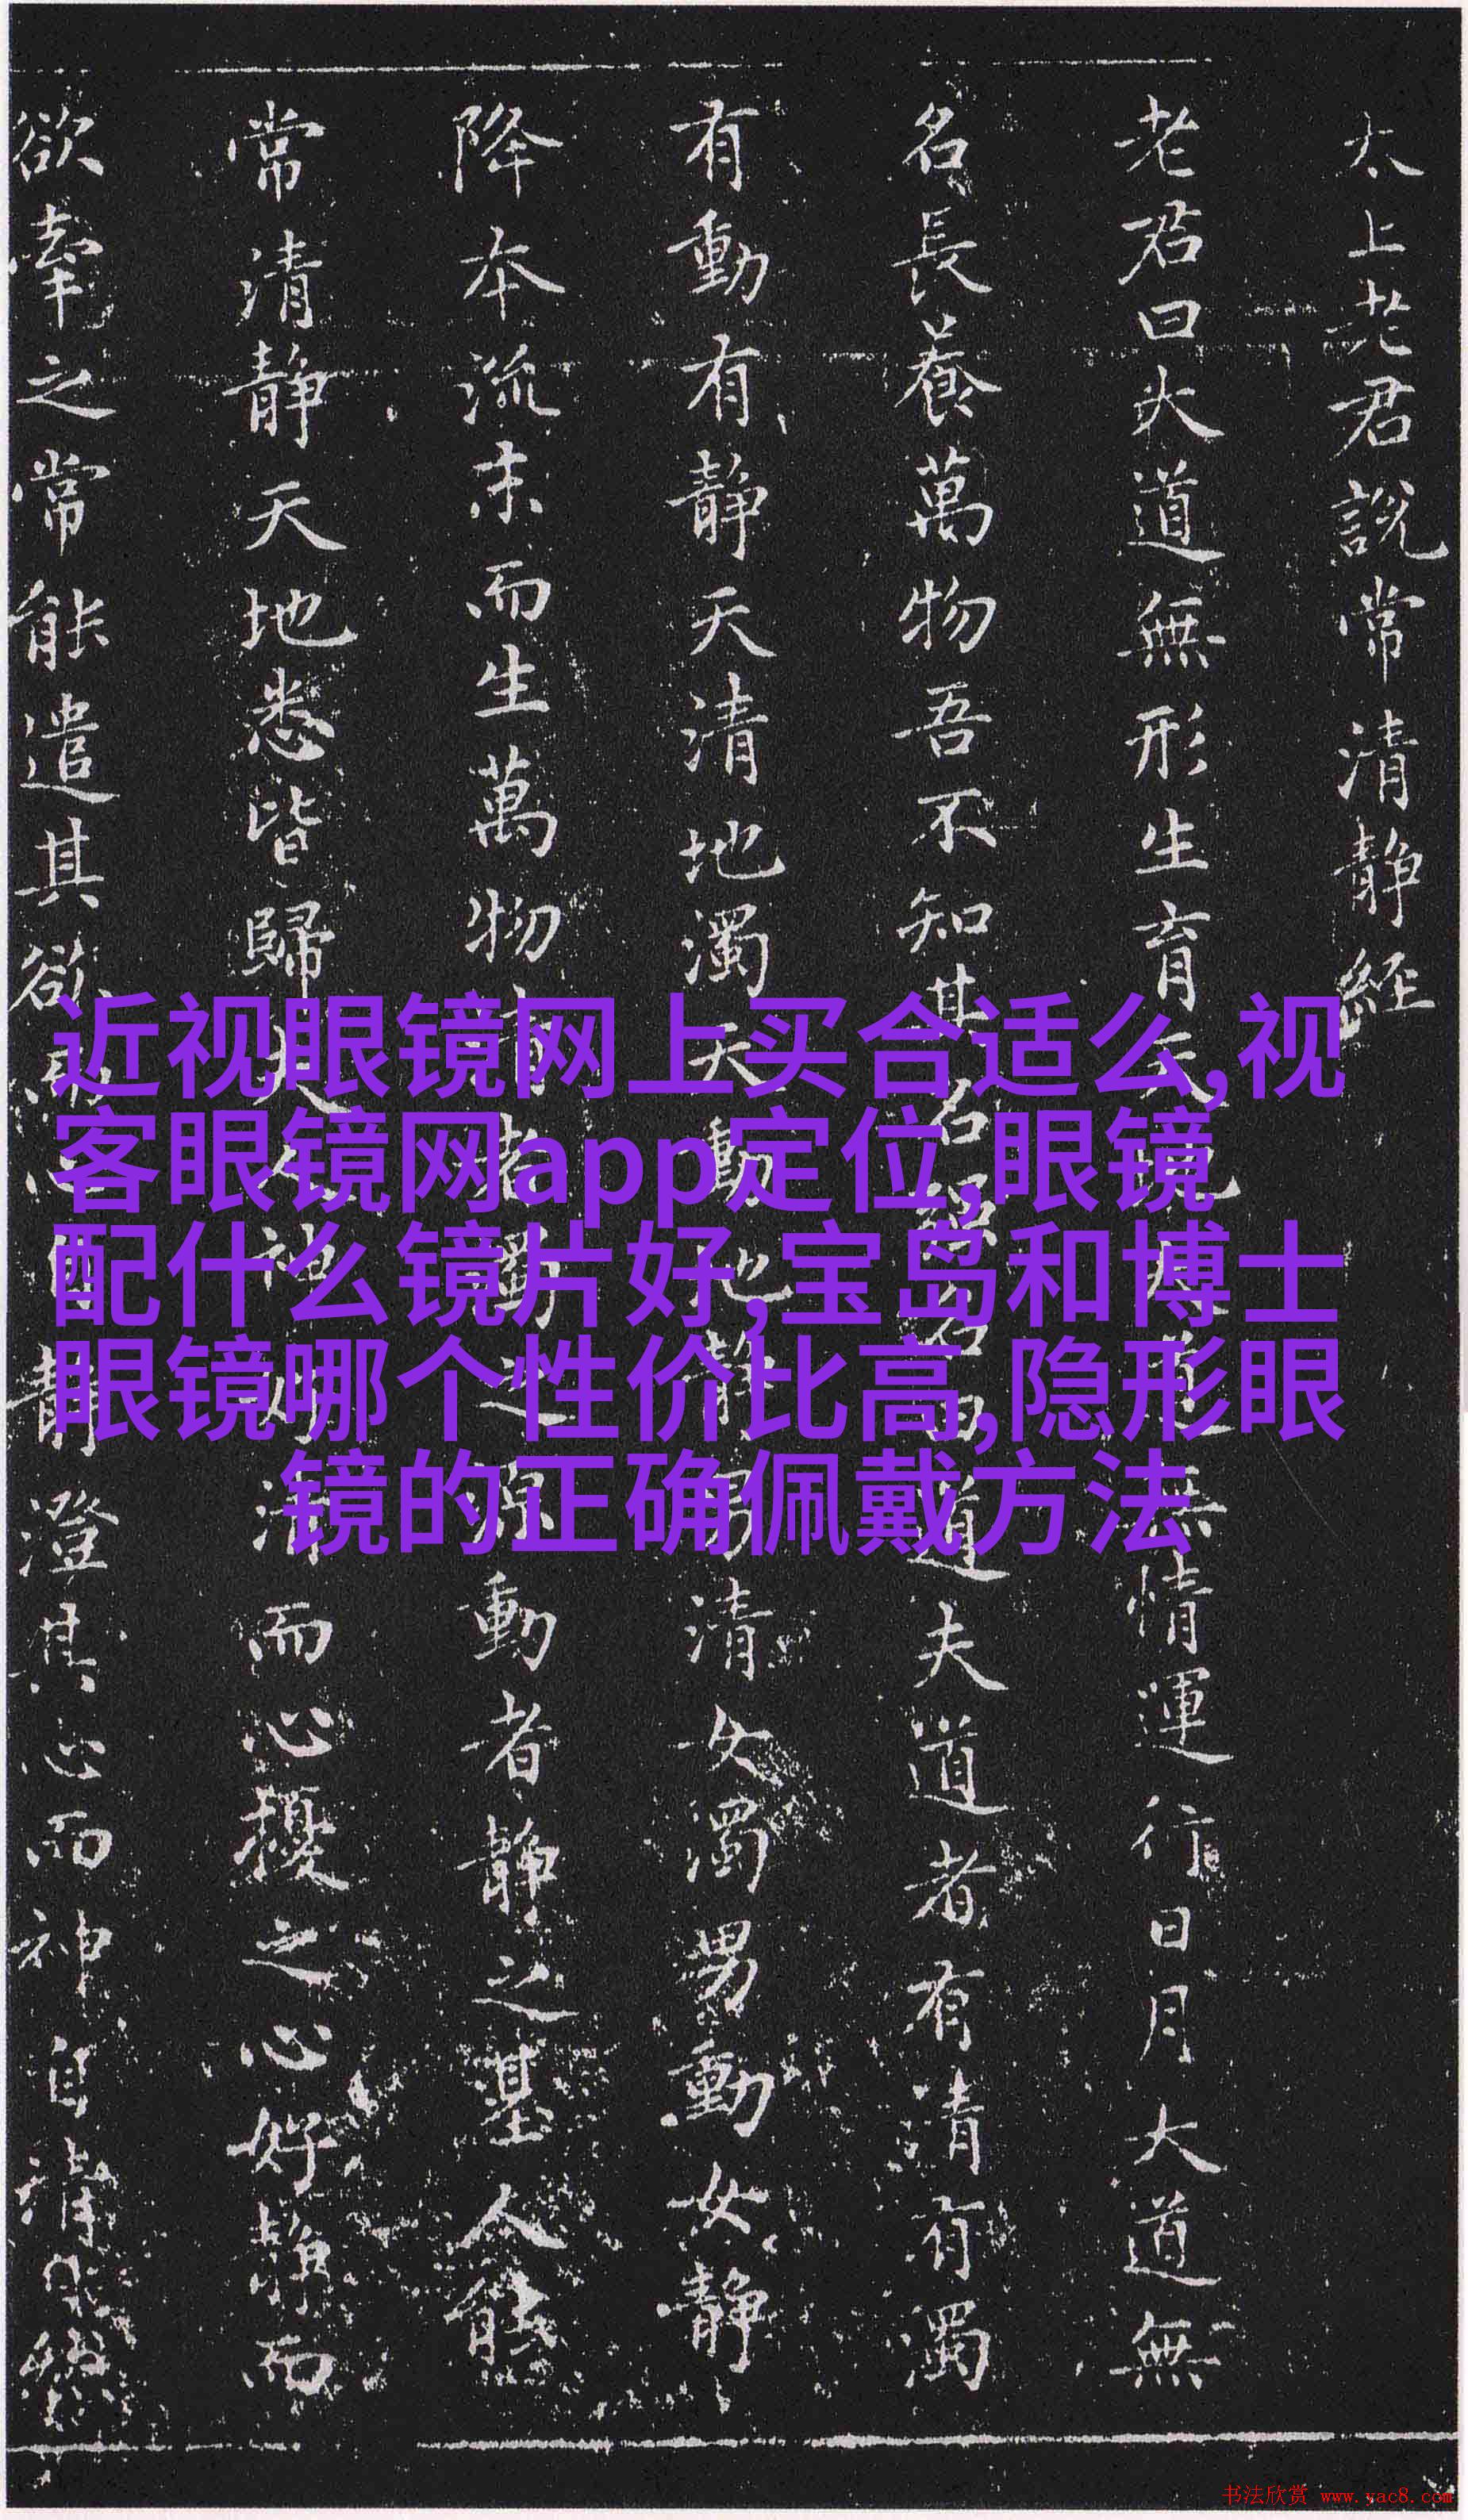 太上老君說常清静經
老君曰大道無形生育天地大道無情運行日月大道無
名長養萬物吾不知其名强名曰道夫道者有清有濁
有動有静天清地濁天動地静男清女濁男動女静
降本流末而生萬物清者濁之源動者静之基人能
常清静天地悉皆歸夫人神好清而心擾之心好静而
欲牽之常能遣其欲而心自静澄其心而神自清自然
近视眼镜网上买合适么,视
客眼镜网app定位,眼镜
配什么镜片好,宝岛和博士
眼镜哪个性价比高,隐形眼
镜的正确佩戴方法
书法欣赏 www.yac8.com